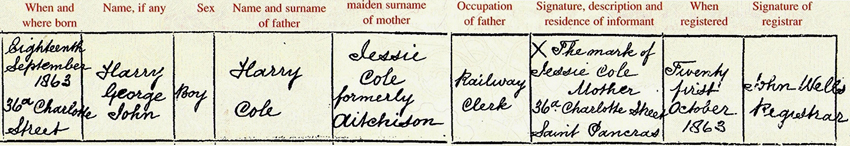 When and where born
Name, if any
Sex
Name and surname of father
maiden surname of mother
Occupation of father
Signature, description and residence of informant
When registered
Signature of registrar
Eighteenth
September
1863
36a Charlotte
Street
Harry
George
John
Boy
Harry
Cole
Jessie
Cole
formerly
Aitchison
Railway
Clerk
X The mark of
Jessie Cole
Mother
36a Charlotte Street
Saint Pancras
Twenty
first
October
1863
John Wells
Registrar